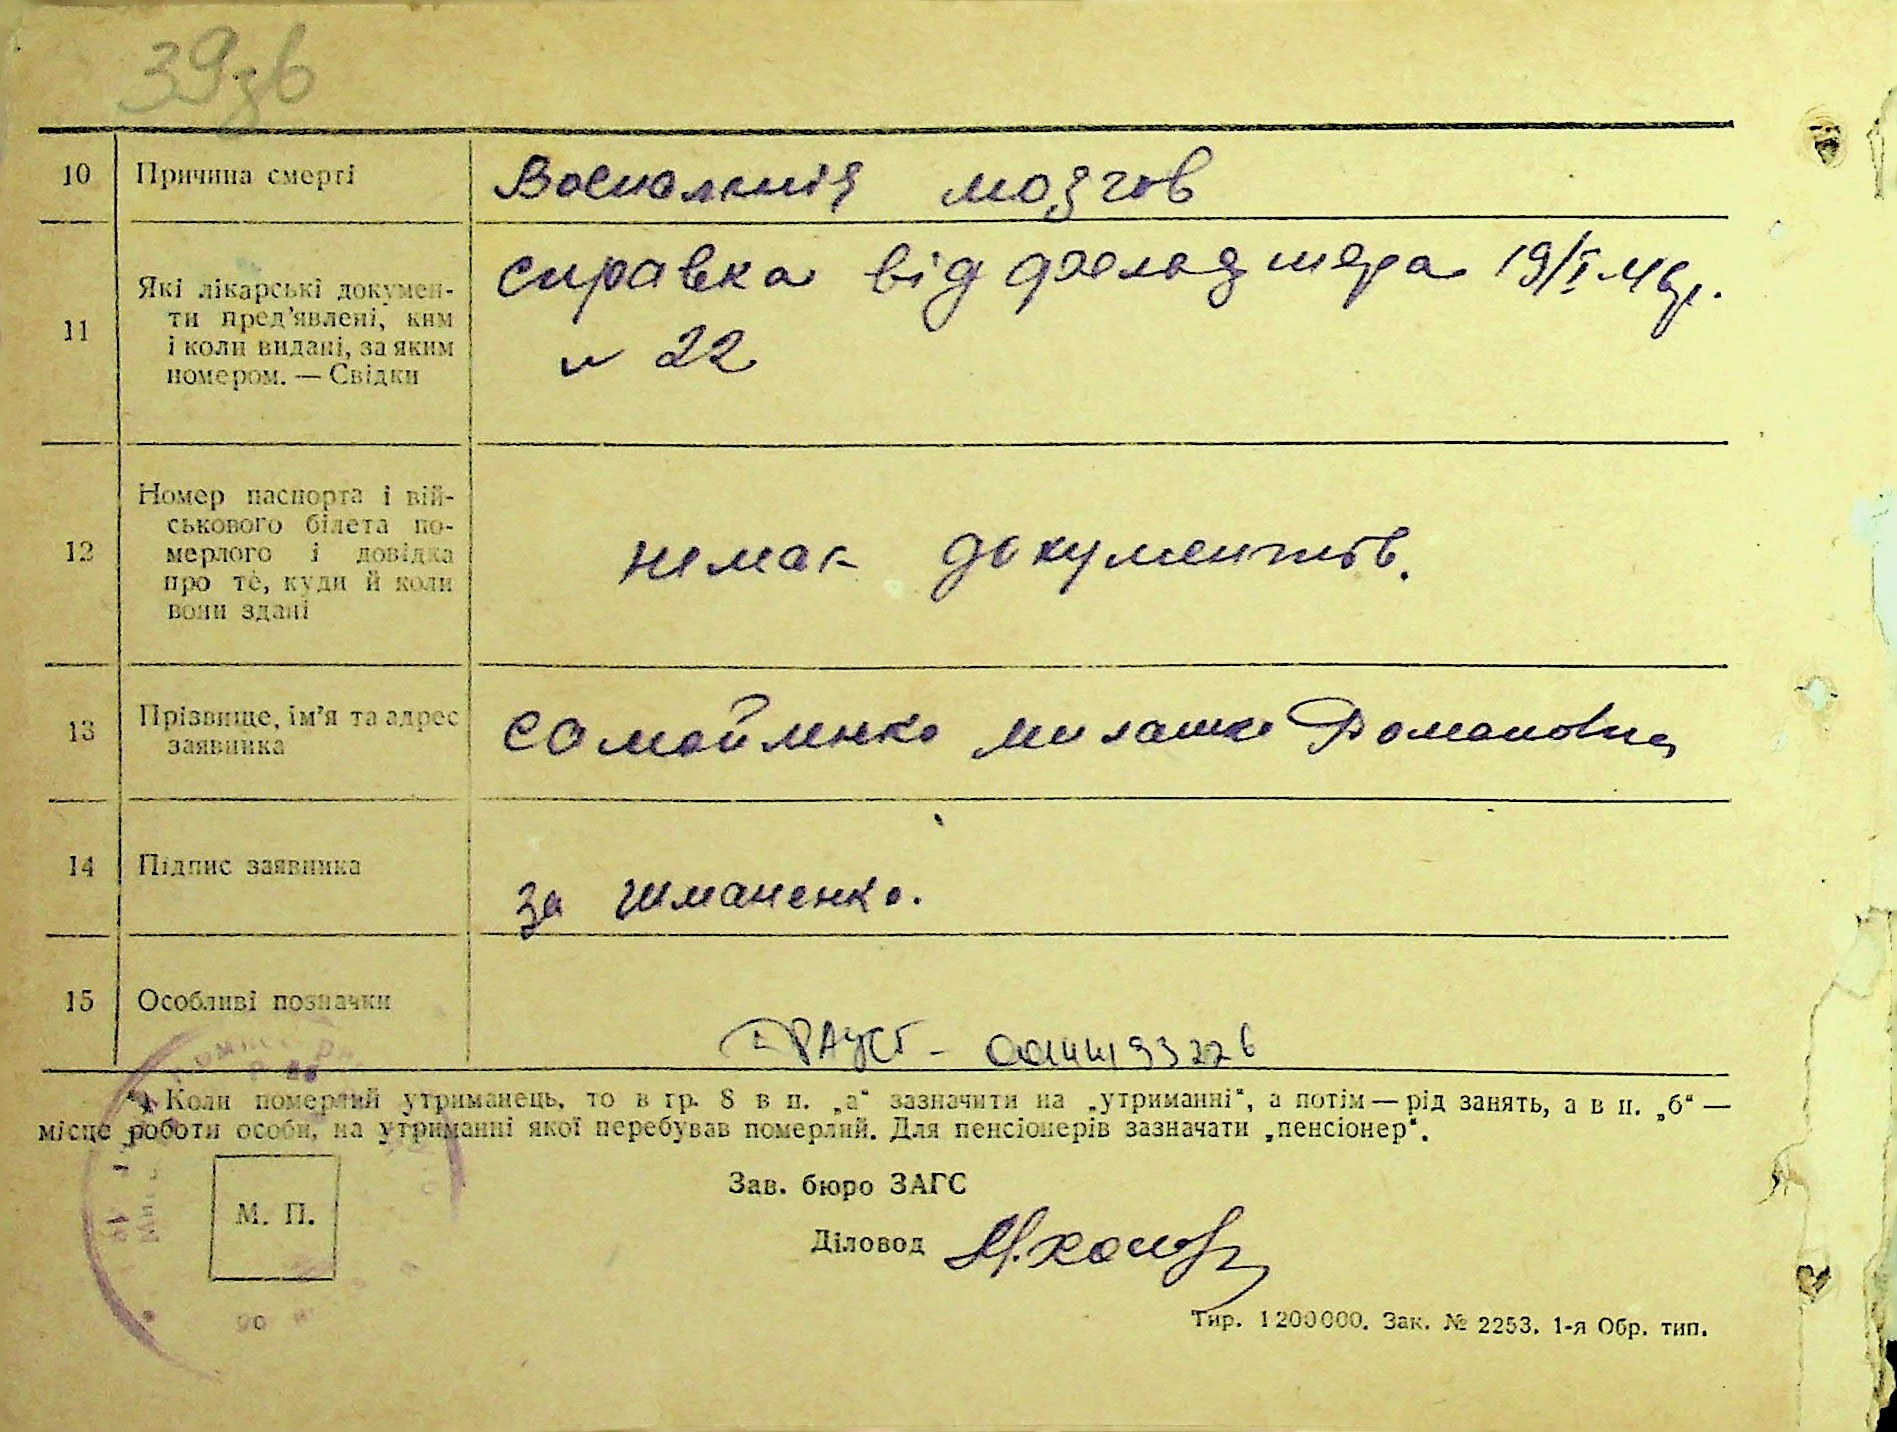 39зв
10 Причина смерті Воспаленія мозгов
11 Які лікарські докумен-
ти пред'явлені, ким
і коли видані, за яким
номером. — Свідки
справка від фельдшера 19/I-
№ 22
12 Номер паспорта і вій-
ськового білета по-
мерлого і довідка
про те, куди й коли
вони здані
немає документів.
13 Прізвище, ім'я та адрес
заявника
Самойленко Милашка
14 Підпис заявника
за Шманенко.
15 Особливі позначки
*) Коли померлий утриманець, то в гр. 8 в п. „а“ зазначити на „утриманні“, а потім — рід занять, а в п. „б“ —
місце роботи особи, на утриманні якої перебував померлий. Для пенсіонерів зазначати „пенсіонер“.
Зав. бюро ЗАГС
М. П.
Діловод
Тир. 1200000. Зак. № 2253. 1-я Обр. тип.